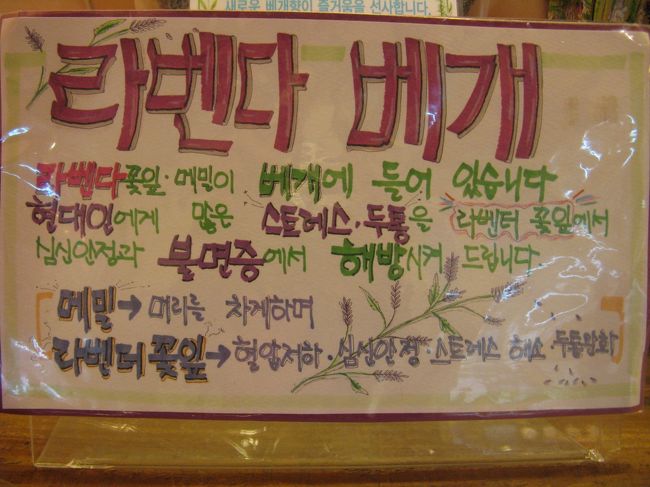 새로운 베개향이 즐거움을 선사합니다.
라벤다 베개
라벤다꽃잎·메밀이 베개에 들어 있습니다
현대인에게 많은 스트레스·두통을 라벤더 꽃잎에서
심신안정과 불면증에서 해방시켜 드립니다
메밀→머리를 차게하며
라벤더꽃잎→혈압저하·심신안정·스트레스 해소·두통완화